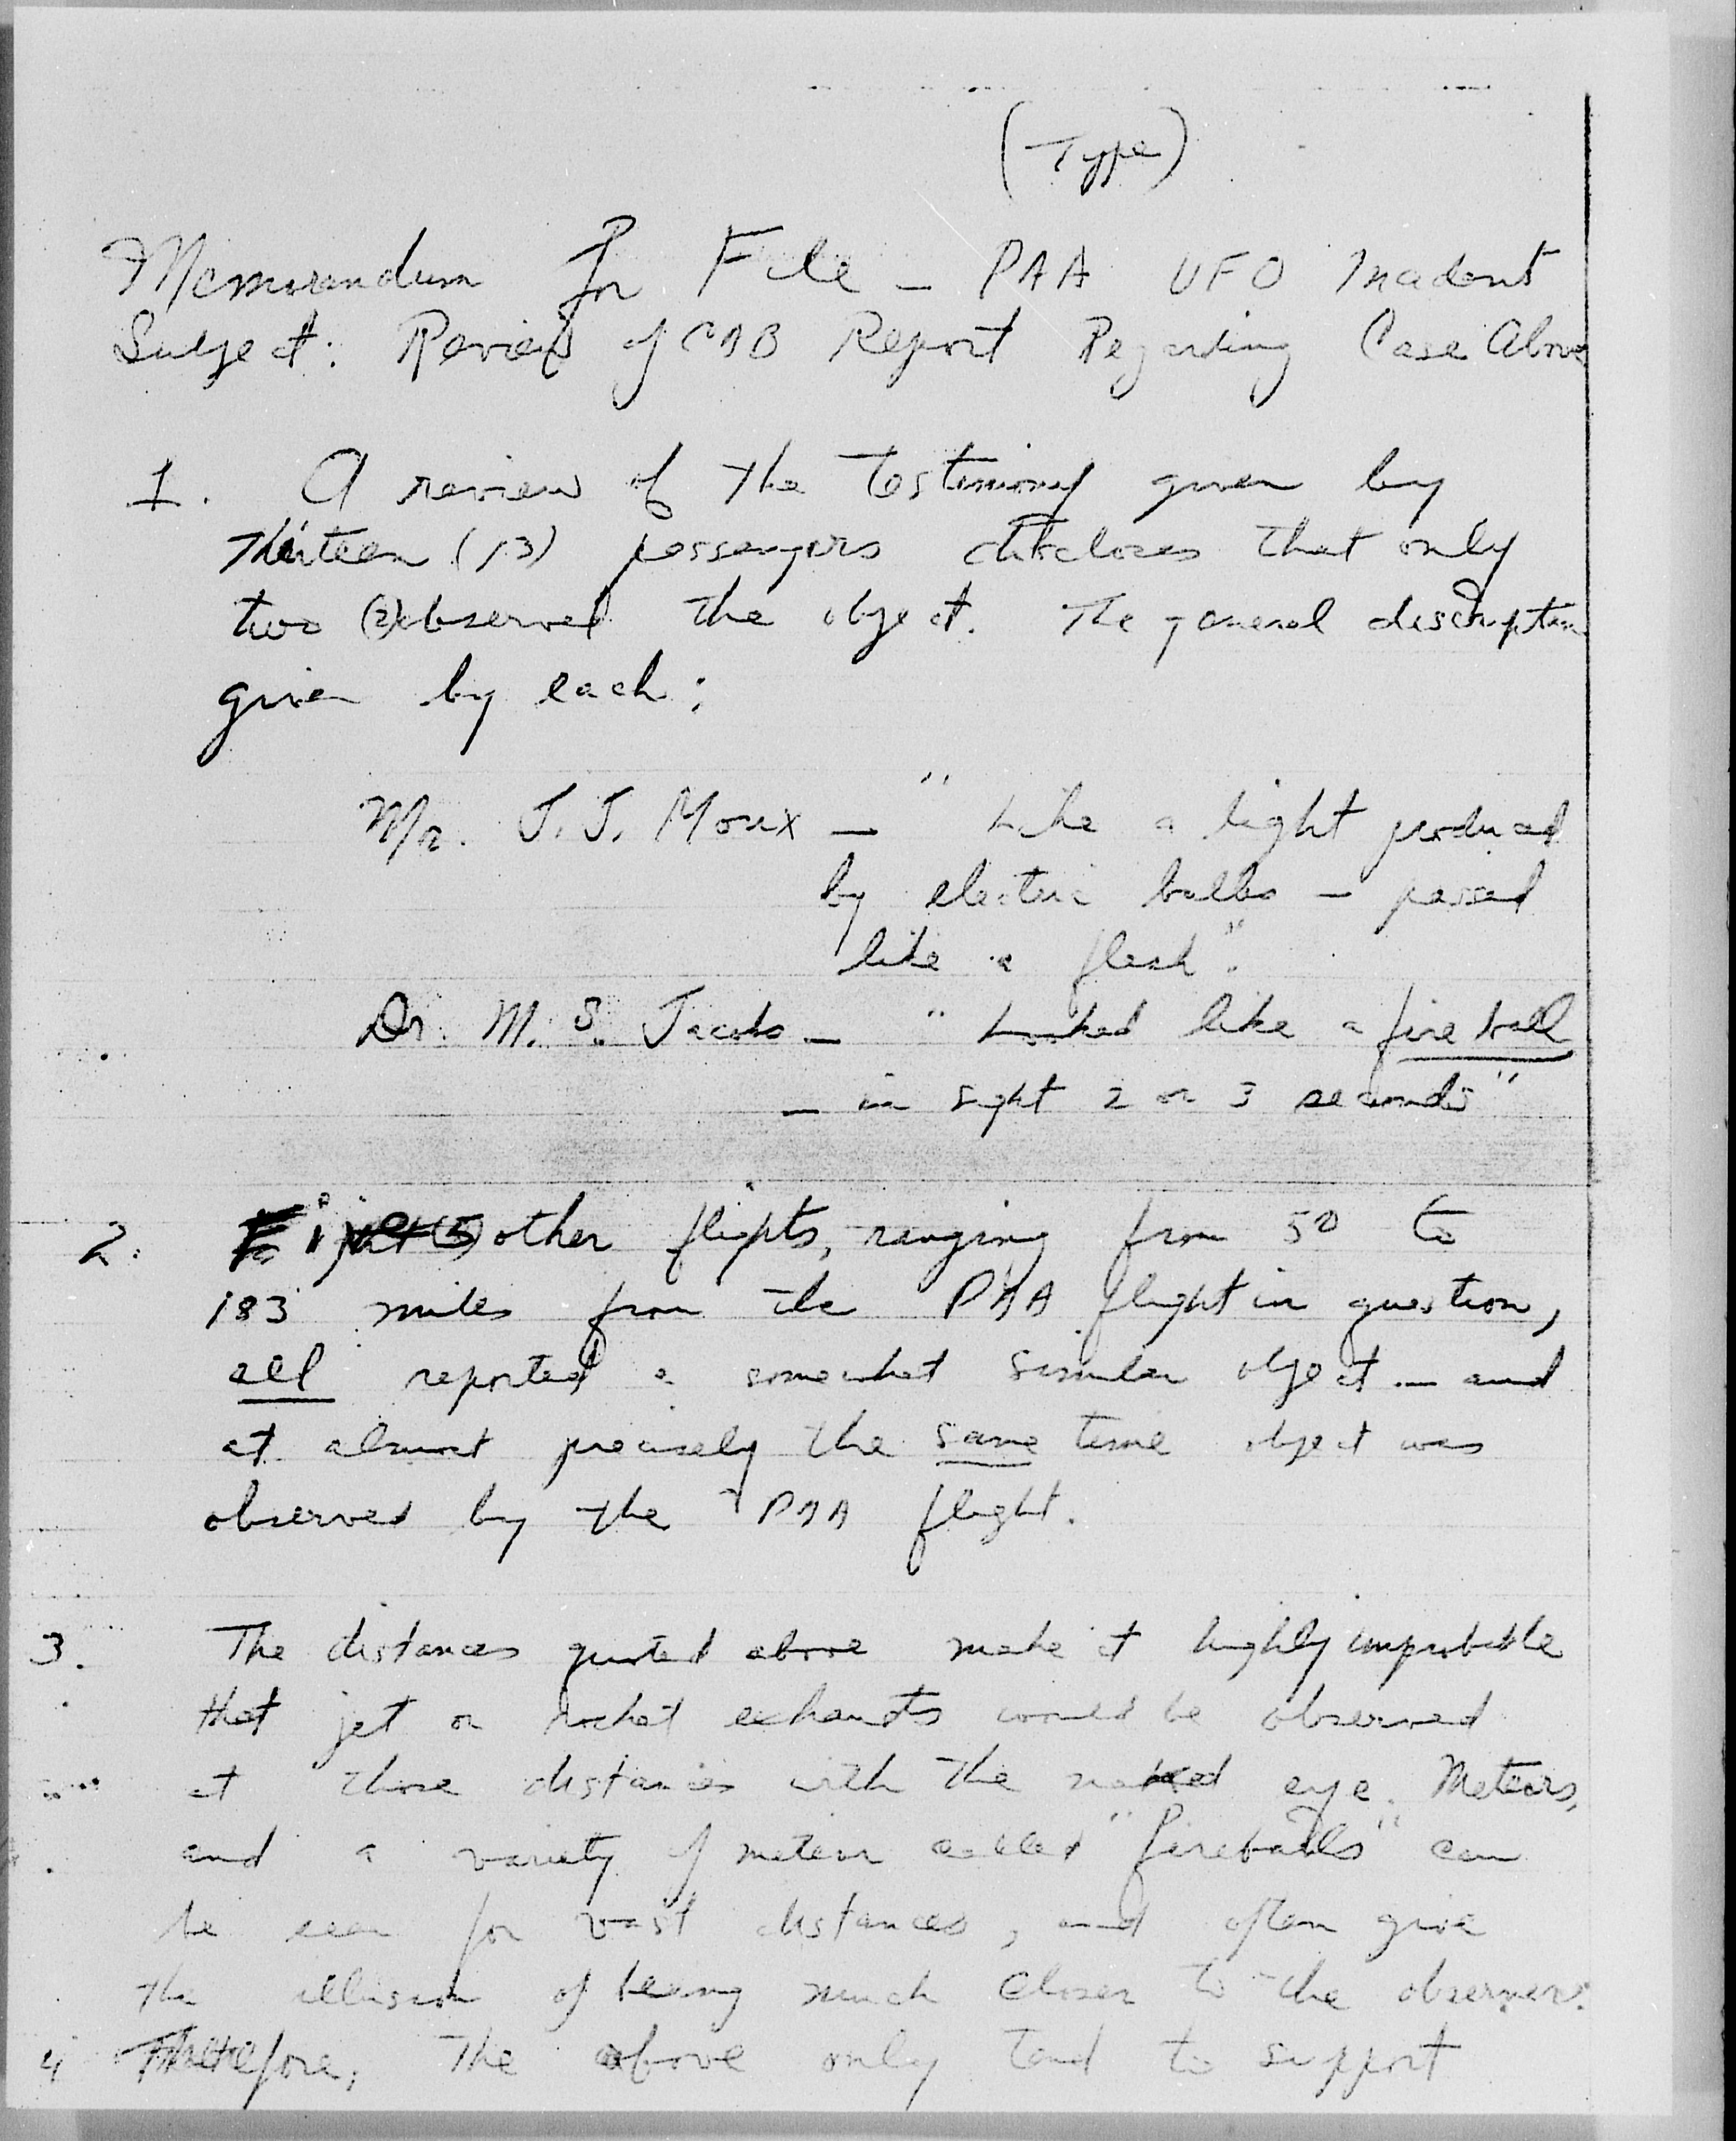 (Type)
Memorandum for File - PAA UFO Incident
Subject: Review of CAB Report Regarding Case Above
1. A review of the testimony given by
thirteen (13) passengers discloses that only
two (2) observed the object. The general description
given by each:
Mr. J. J. - "Like a light produced
by electric bulbs - passed
like a flash".
Dr. M. S. Jacobs - "Looked like a fire ball
- in sight 2 or 3 seconds"
2. other flights, ranging from 50 to
183 miles from the PAA flight in question,
all reported a somewhat similar object - and
at almost precisely the same time object was
observed by the PAA flight.
3. The distances quoted above make it highly improbable
that jet or rocket exhausts would be observed
at those distances with the naked eye. Meteors,
and a variety of meteor called "fireballs" can
be seen for vast distances, and often give
the illusion of being much closer to the observer.
4 Therefore, the above only tend to support